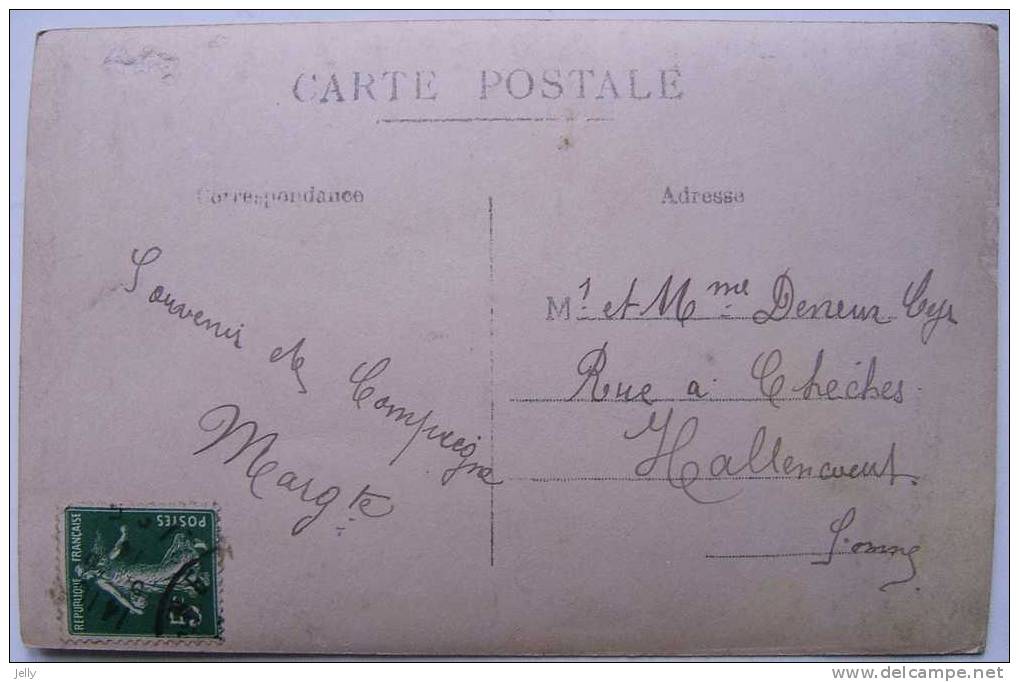 CARTE POSTALE
Correspondance
Adresse
Souvenir de Compiègne
Margte
Mr et Mme Deneux Cyr
Rue à Chéches
Hallencourt
Somme
REPUBLIQUE FRANÇAISE
POSTES
5c
jelly
www.delcampe.net